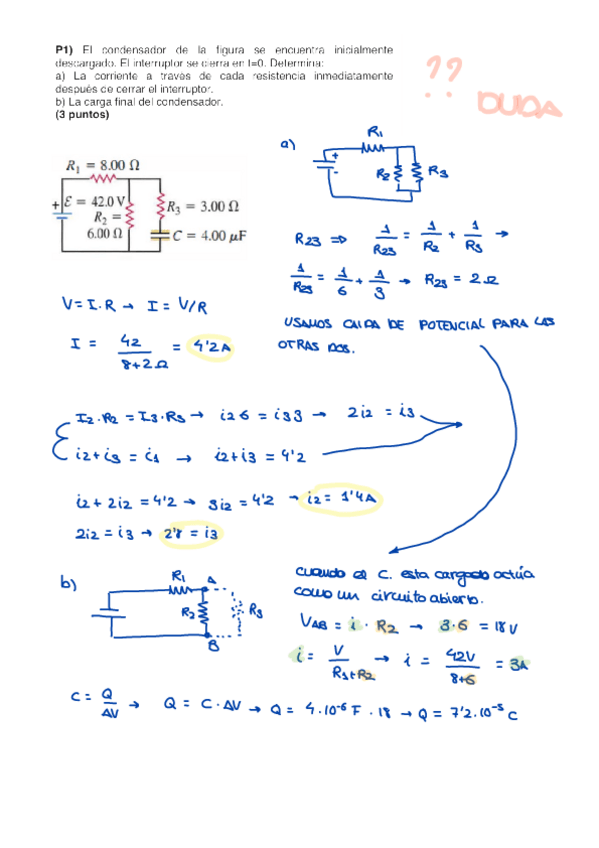 P1) El condensador de la figura se encuentra inicialmente
descargado. El interruptor se cierra en t=0. Determina:
a) La corriente a través de cada resistencia inmediatamente
después de cerrar el interruptor.
b) La carga final del condensador.
(3 puntos)
?? DUDA
R₁ = 8.00 Ω
+ ℰ = 42.0 V
R₂ =
6.00 Ω
R₃ = 3.00 Ω
C = 4.00 μF
a)
R₁
+
-
R₂
R₃
R₂₃ => 1/R₂₃ = 1/R₂ + 1/R₃ →
1/R₂₃ = 1/6 + 1/3 → R₂₃ = 2 Ω
V = I·R → I = V/R
I = 42/(8+2Ω) = 4'2A
USAMOS CAIDA DE POTENCIAL PARA LAS
OTRAS DOS.
I₂·R₂ = I₃·R₃ → i₂6 = i₃3 → 2i₂ = i₃
i₂+i₃ = i₁ → i₂+i₃ = 4'2
i₂ + 2i₂ = 4'2 → 3i₂ = 4'2 → i₂ = 1'4A
2i₂ = i₃ → 2'8 = i₃
b)
R₁ A
R₂ R₃
B
cuando el C. esta cargado actúa
como un circuito abierto.
V_AB = i · R₂ → 3·6 = 18V
i = V/(R₁+R₂) → i = 42V/(8+6) = 3A
C = Q/ΔV → Q = C·ΔV → Q = 4·10⁻⁶ F · 18 → Q = 7'2·10⁻⁵ C